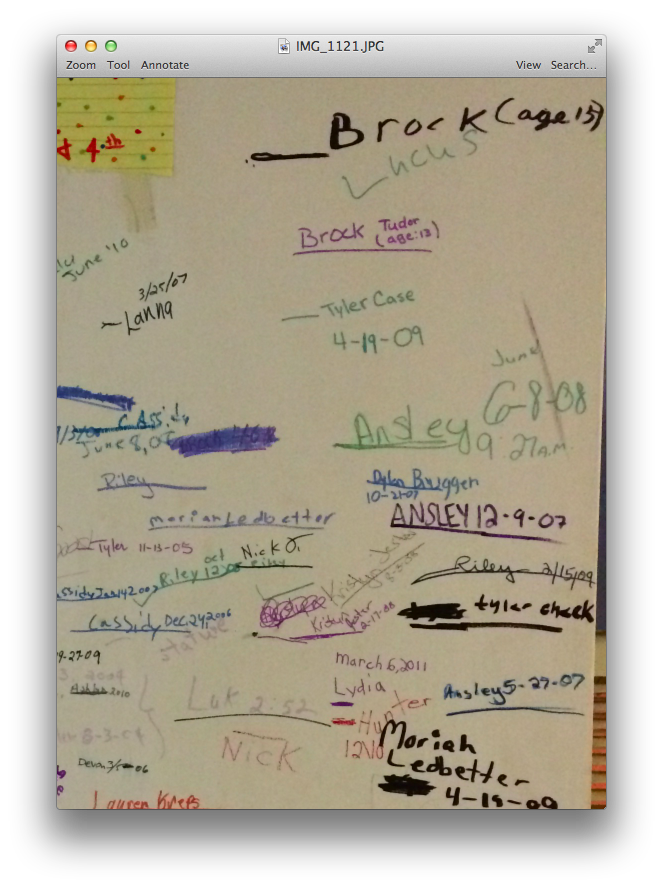 IMG_1121.JPG
Zoom Tool Annotate View Search...
& 4th
Brock (age 15)
Lucus
Brock Tudor
(age:13)
June '10
3/25/07
Lanna
Tyler Case
4-19-09
June
6-8-08
Cassidy
June 8, 0
Ansley
9:27 A.M.
Riley
Dylan Bruggen
10-21-07
ANSLEY 12-9-07
moriah Ledbetter
Tyler 11-13-05
Riley oct
Nick J.
Kristyn
Riley 2/15/09
Cassidy Jan 14 2007
tyler cheek
Cassidy Dec 24, 2006
stature
9-27-09
March 6, 2011
Lydia
Ansley 5-27-07
2010
Luk 2:52
Hunter
8-3-04
Nick
12 No
Moriah
Ledbetter
Devan 06
4-19-09
Lauren Kreps